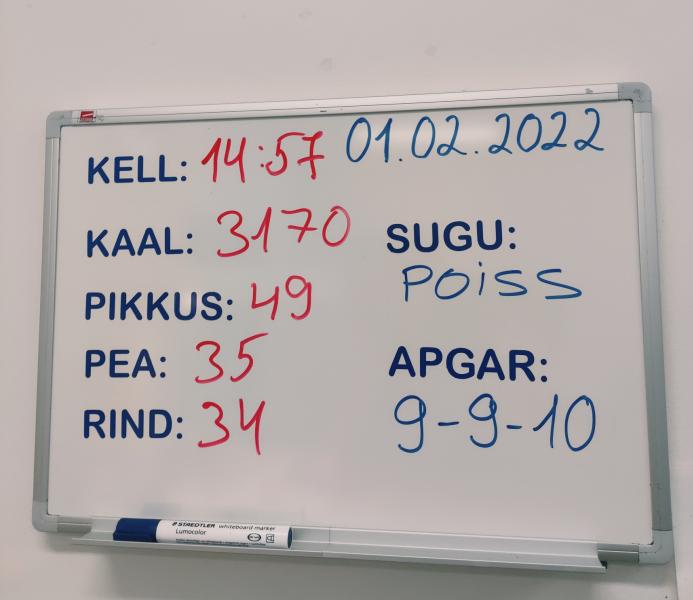 KELL: 14:57 01.02.2022
KAAL: 3170
SUGU:
POiSS
PIKKUS: 49
PEA: 35
APGAR:
9-9-10
RIND: 34
STAEDTLER whiteboard marker
Lumocolor